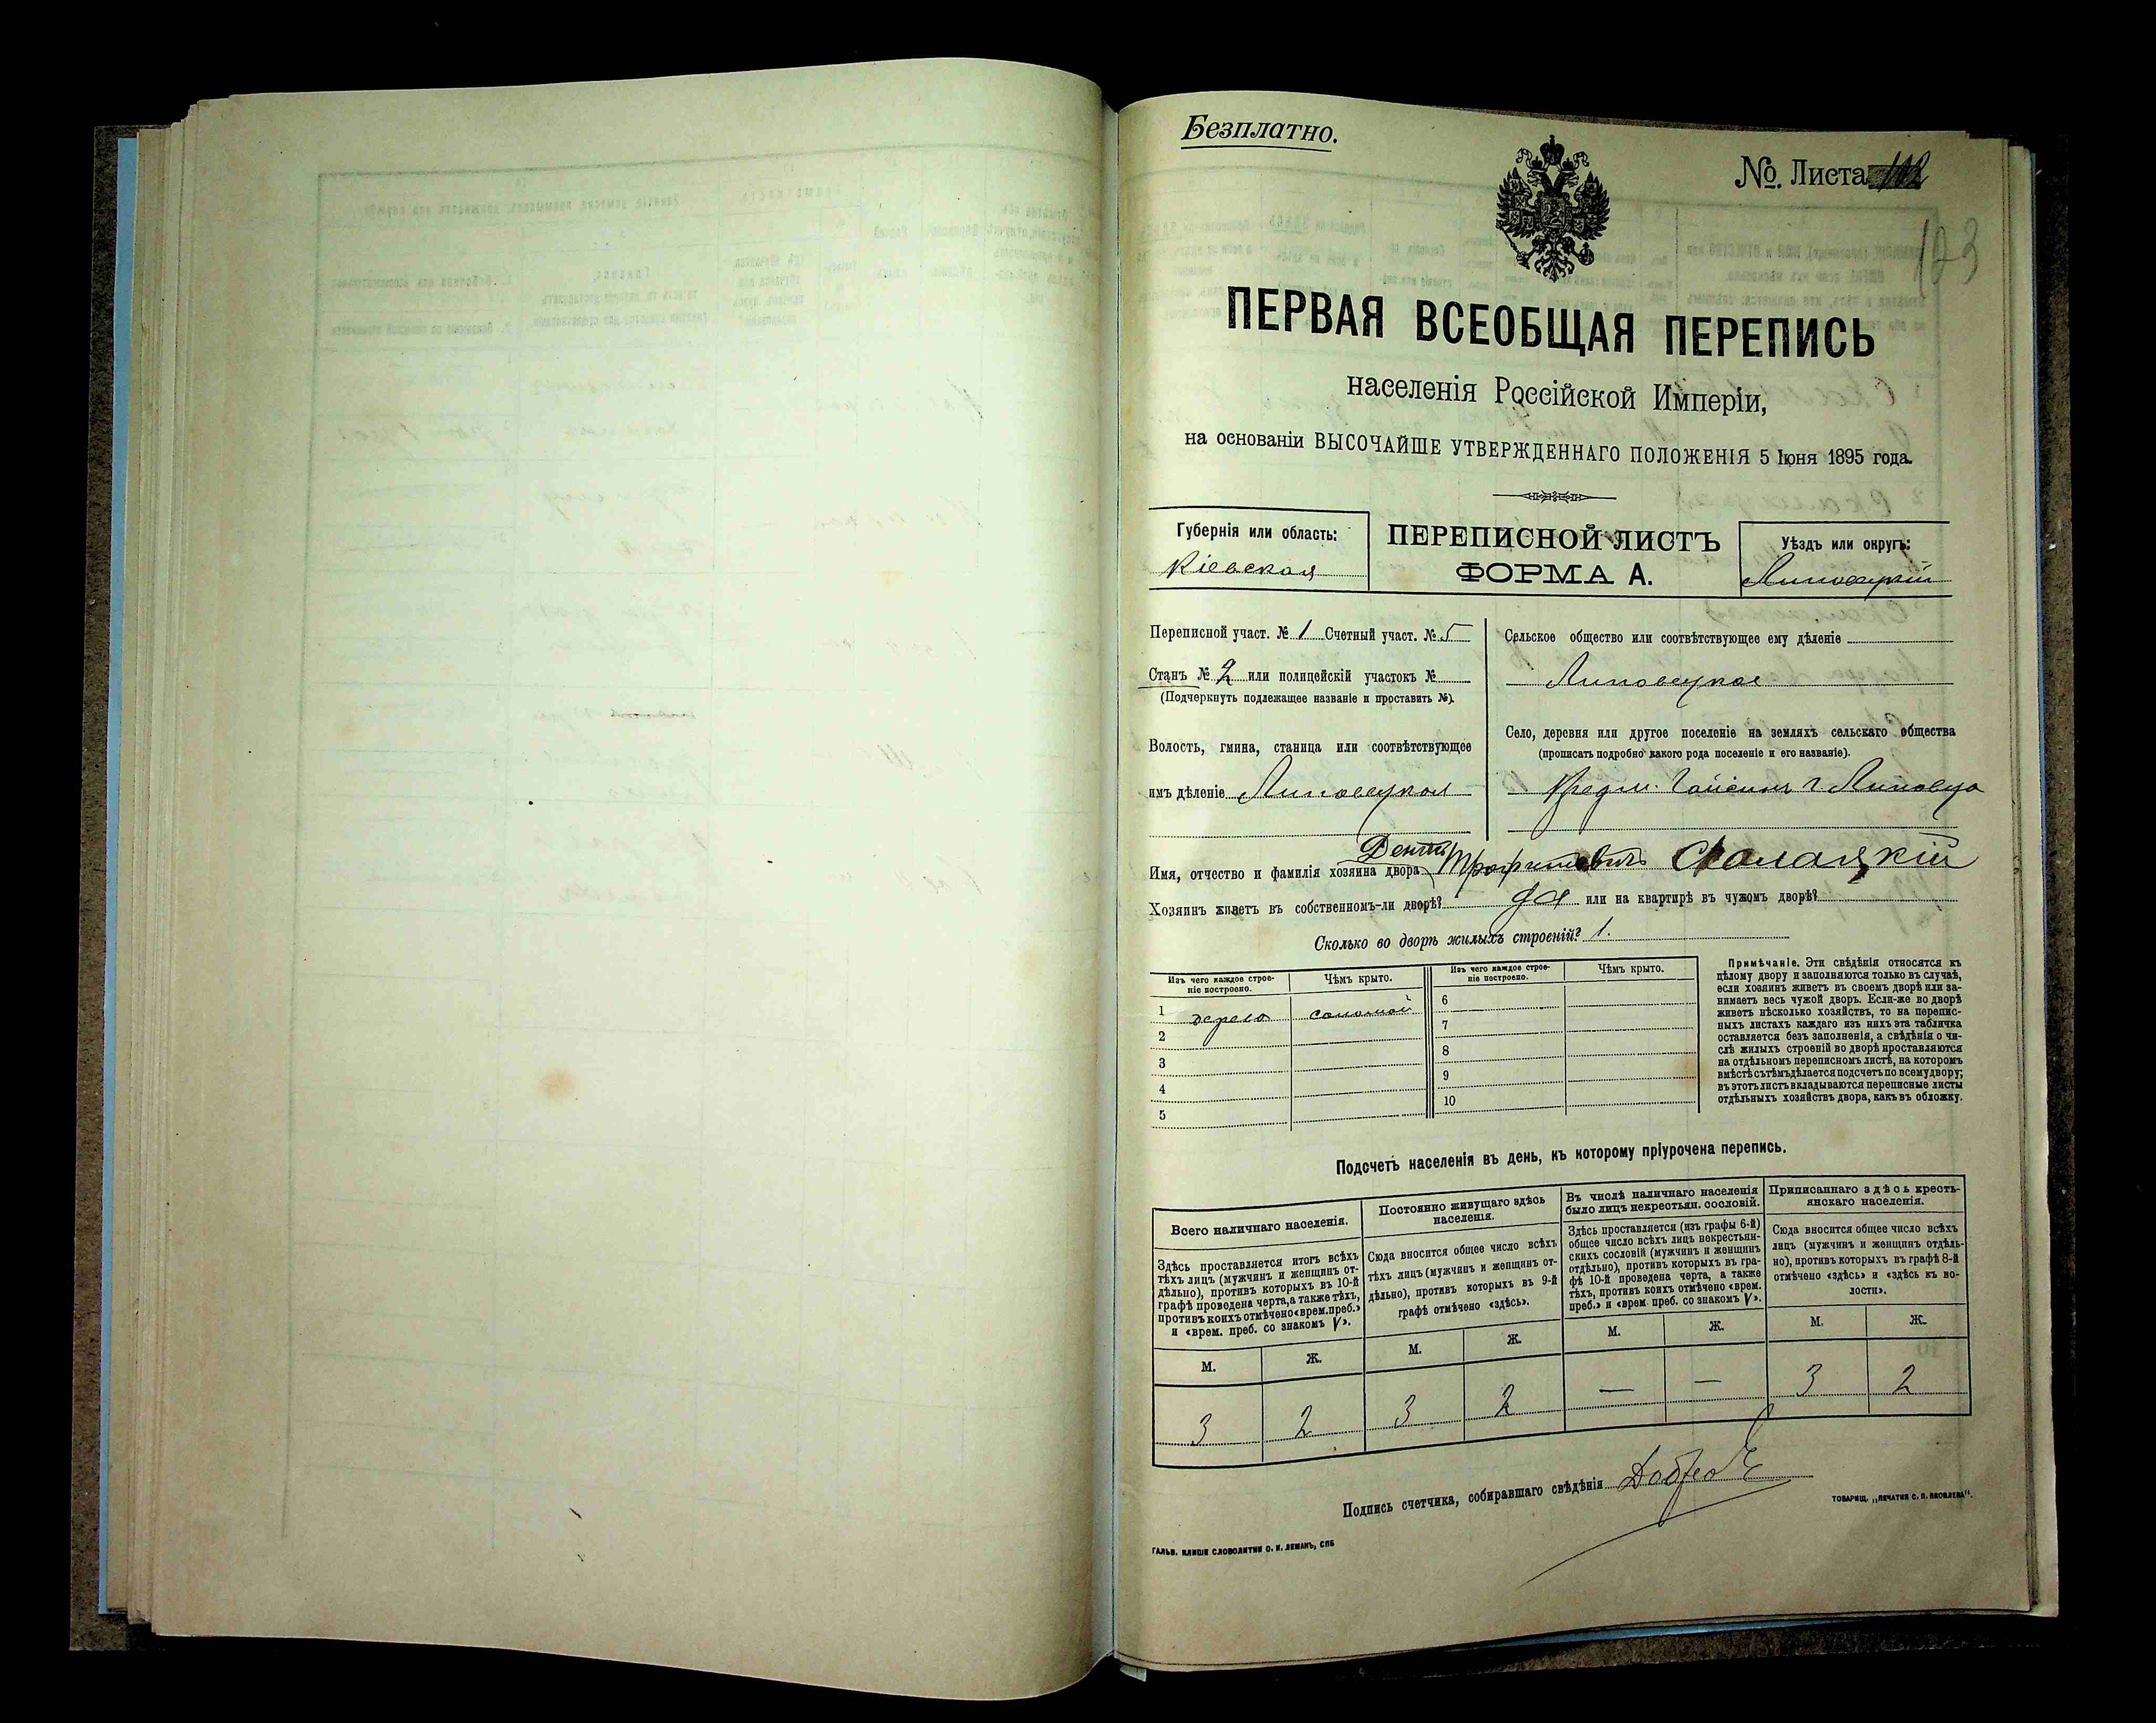 Безплатно.
№ Листа 102
123
ПЕРВАЯ ВСЕОБЩАЯ ПЕРЕПИСЬ
населенія Россійской Имперіи,
на основаніи ВЫСОЧАЙШЕ УТВЕРЖДЕННАГО ПОЛОЖЕНІЯ 5 Іюня 1895 года.
Губернія или область:
Кіевская
ПЕРЕПИСНОЙ ЛИСТЪ
ФОРМА А.
Уѣздъ или округъ:
Липовецкій
Переписной участ. № 1 Счетный участ. № 5
Станъ № 2 или полицейскій участокъ №
(Подчеркнуть подлежащее названіе и проставить №).
Волость, гмина, станица или соотвѣтствующее
имъ дѣленіе Липовецкая
Сельское общество или соотвѣтствующее ему дѣленіе
Липовецкое
Село, деревня или другое поселеніе на земляхъ сельскаго общества
(прописать подробно какого рода поселеніе и его названіе).
Предм. Гайсинъ г. Липовца
Имя, отчество и фамилія хозяина двора Трофимовичъ
Хозяинъ живетъ въ собственномъ-ли дворѣ? да или на квартирѣ въ чужомъ дворѣ?
Сколько во дворѣ жилыхъ строеній? 1.
Изъ чего каждое строе-
ніе построено.
Чѣмъ крыто.
Изъ чего каждое строе-
ніе построено.
Чѣмъ крыто.
1 дерево соломой
2
3
4
5
6
7
8
9
10
Примѣчаніе. Эти свѣдѣнія относятся къ
цѣлому двору и заполняются только въ случаѣ,
если хозяинъ живетъ въ своемъ дворѣ или за-
нимаетъ весь чужой дворъ. Если-же во дворѣ
живетъ нѣсколько хозяйствъ, то на перепис-
ныхъ листахъ каждаго изъ нихъ эта табличка
оставляется безъ заполненія, а свѣдѣнія о чи-
слѣ жилыхъ строеній во дворѣ проставляются
на отдѣльномъ переписномъ листѣ, на которомъ
вмѣстѣ съ тѣмъ дѣлается подсчетъ по всему двору;
въ этотъ листъ вкладываются переписные листы
отдѣльныхъ хозяйствъ двора, какъ въ обложку.
Подсчетъ населенія въ день, къ которому пріурочена перепись.
Всего наличнаго населенія.
Здѣсь проставляется итогъ всѣхъ
тѣхъ лицъ (мужчинъ и женщинъ от-
дѣльно), противъ которыхъ въ 10-й
графѣ проведена черта, а также тѣхъ,
противъ коихъ отмѣчено «врем. преб.»
и «врем. преб. со знакомъ V».
Постоянно живущаго здѣсь
населенія.
Сюда вносится общее число всѣхъ
тѣхъ лицъ (мужчинъ и женщинъ от-
дѣльно), противъ которыхъ въ 9-й
графѣ отмѣчено «здѣсь».
Въ числѣ наличнаго населенія
было лицъ некрестьян. сословій.
Здѣсь проставляется (изъ графы 6-й)
общее число всѣхъ лицъ некрестьян-
скихъ сословій (мужчинъ и женщинъ
отдѣльно), противъ которыхъ въ гра-
фѣ 10-й проведена черта, а также
тѣхъ, противъ коихъ отмѣчено «врем.
преб.» и «врем. преб. со знакомъ V».
Приписаннаго здѣсь кресть-
янскаго населенія.
Сюда вносится общее число всѣхъ
лицъ (мужчинъ и женщинъ отдѣль-
но), противъ которыхъ въ графѣ 8-й
отмѣчено «здѣсь» и «здѣсь къ во-
лости».
М. Ж. М. Ж. М. Ж. М. Ж.
3 2 3 2 — — 3 2
Подпись счетчика, собиравшаго свѣдѣнія
ГАЛЬВ. КЛИШЕ СЛОВОЛИТНИ О. И. ЛЕМАНЪ, СПБ
ТОВАРИЩ. „ПЕЧАТНЯ С. П. ЯКОВЛЕВА".